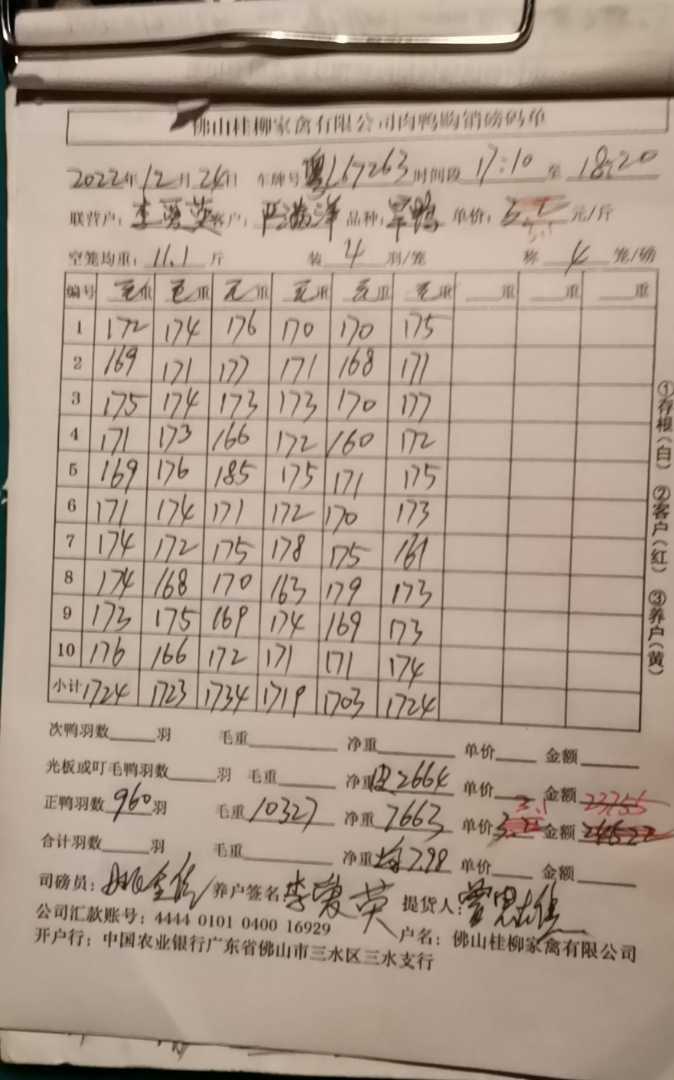 佛山桂柳家禽有限公司肉鸭购销磅码单
2022年12月24日 车牌号 粤L67263 时间段 17:10 至 18:20
联营户: 李爱英 客户: 严 洋 品种: 旱鸭 单价: 元/斤
空笼均重: 11.1 斤 装 4 羽/笼 称 4 笼/磅
编号 毛重 毛重 毛重 毛重 毛重 毛重 重 重 重
1 172 174 176 170 170 175
2 169 171 177 171 168 171
3 175 174 173 173 170 177
4 171 173 166 172 160 172
5 169 176 185 175 171 175
6 171 174 171 172 170 173
7 174 172 175 178 175 161
8 174 168 170 163 179 173
9 173 175 169 174 169 173
10 176 166 172 171 171 174
小计 1724 1723 1734 1719 1703 1724
次鸭羽数 羽 毛重 净重 单价 金额
光板或叮毛鸭羽数 羽 毛重 净重 2664 单价 金额 23755
正鸭羽数 960 羽 毛重 10327 净重 7663 单价 金额
合计羽数 羽 毛重 净重 均 7.98 单价 金额
司磅员: 养户签名: 李爱英 提货人:
公司汇款账号: 4444 0101 0400 16929 户名: 佛山桂柳家禽有限公司
开户行: 中国农业银行广东省佛山市三水区三水支行
①存根(白) ②客户(红) ③养户(黄)